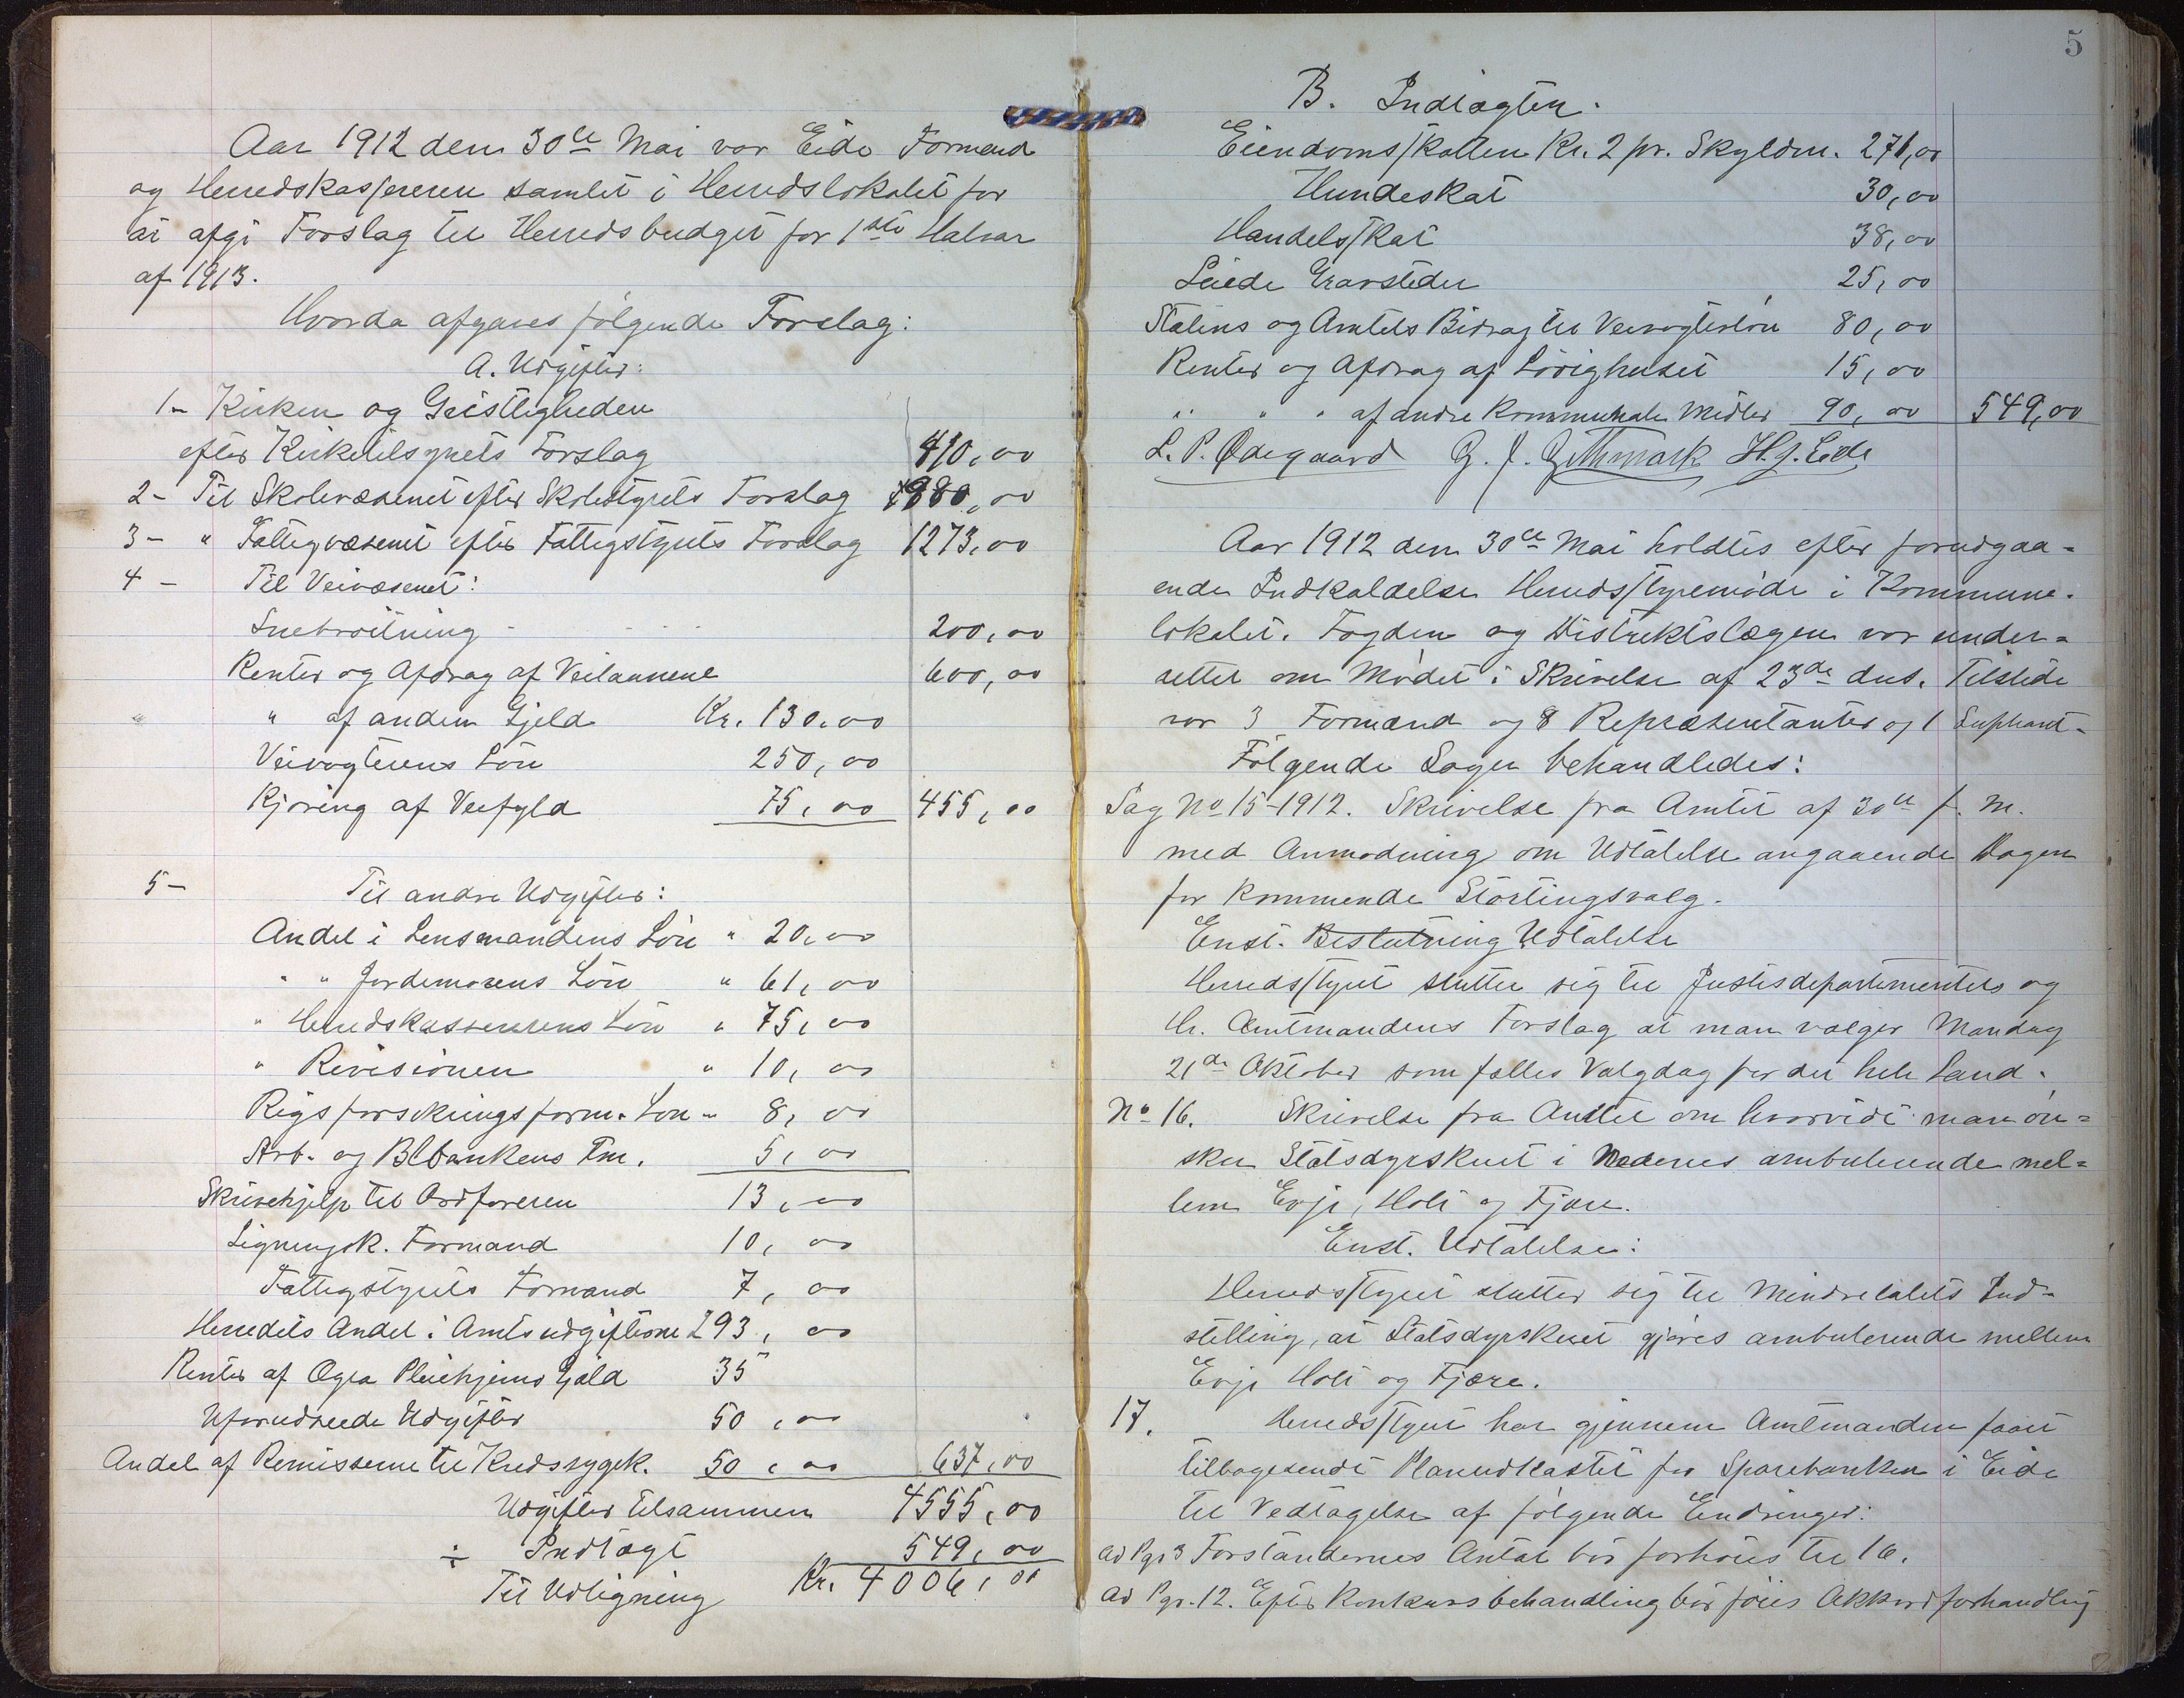 Aar 1912 den 30te Mai var Eide Formænd
og Herredskasseren samlet i Herredslokalet for
at afgi Forslag til Herredsbudget for 1ste Halvaar
af 1913.
Hvorda afgaves følgende Forslag:
A. Udgifter:
1- Kirken og Geistligheden
efter Kirketilsynets Forslag 410,00
2- Til Skolevæsenet efter Skolestyrets Forslag 980,00
3- " Fattigvæsenet efter Fattigstyrets Forslag 1273,00
4- Til Veivæsenet:
Snebrøitning 200,00
Renter og Afdrag af Veilaanene 600,00
" af anden Gjeld Kr. 130,00
Veivogterens Løn 250,00
Kjøring af Veifyld 75,00 455,00
5- Til andre Udgifter:
Andel i Lensmandens Løn " 20,00
" " Jordemorens Løn " 61,00
" Herredskassererens Løn " 75,00
" Revisionen " 10,00
Rigsforsikringsform. Løn " 8,00
Arb. og Blbankens Fm. 5,00
Skrivehjelp til Ordføreren 13,00
Ligningsk. Formand 10,00
Fattigstyrets Formand 7,00
Herredets Andel i Amtsudgifterne 293,00
Renter af Ogra Pleiehjems Gjæld 35
Uforudseede Udgifter 50,00
Andel af Remisserne til Kredssygek. 50,00 637,00
Udgifter tilsammen 4555,00
÷ Indtægt 549,00
Til Udligning Kr. 4006,00
5
B. Indtægter.
Eiendomsskatten Kr. 2 pr. Skyldm. 271,00
Hundeskat 30,00
Handelsskat 38,00
Leiede Gravsteder 25,00
Statens og Amtets Bidrag til Veivogterløn 80,00
Renter og Afdrag af Lørighuset 15,00
" " " af andre Kommunale Midler 90,00 549,00
L. P. Ødegaard G. J. Githmark H. J. Eide
Aar 1912 den 30te Mai holdtes efter forudgaa-
ende Indkaldelse Herredsstyremøde i Kommune-
lokalet. Fogden og Distriktslægen var under-
rettet om Mødet i Skrivelse af 23de ds. Tilstede
var 3 Formænd og 8 Repræsentanter og 1 Supleant.
Følgende Sager behandledes:
Sag No 15-1912. Skrivelse fra Amtet af 30te f. M.
med Anmodning om Udtalelse angaaende Dagen
for kommende Stortingsvalg.
Enst. Beslutning Udtalelse
Herredsstyret slutter sig til Justisdepartementets og
Hr. Amtmandens Forslag at man vælger Mandag
21de Oktober som fælles Valgdag for det hele Land.
No 16. Skrivelse fra Amtet om hvorvidt man øn-
sker Statsdyrskuet i Nedenes ambulerende mel-
lem Evje, Holt og Fjære.
Enst. Udtalelse:
Herredsstyret slutter sig til Mindretalets Ind-
stilling, at Statsdyrskuet gjøres ambulerende mellem
Evje Holt og Fjære.
17. Herredsstyret har gjennem Amtmanden faaet
tilbagesendt Planudkastet for Sparebanken i Eide
til Vedtagelse af følgende Endringer:
Ad Pgr 3 Forstandernes Antal bør forhøies til 16.
Ad Pgr. 12. Efter Konkursbehandling bør føies Akkordforhandling